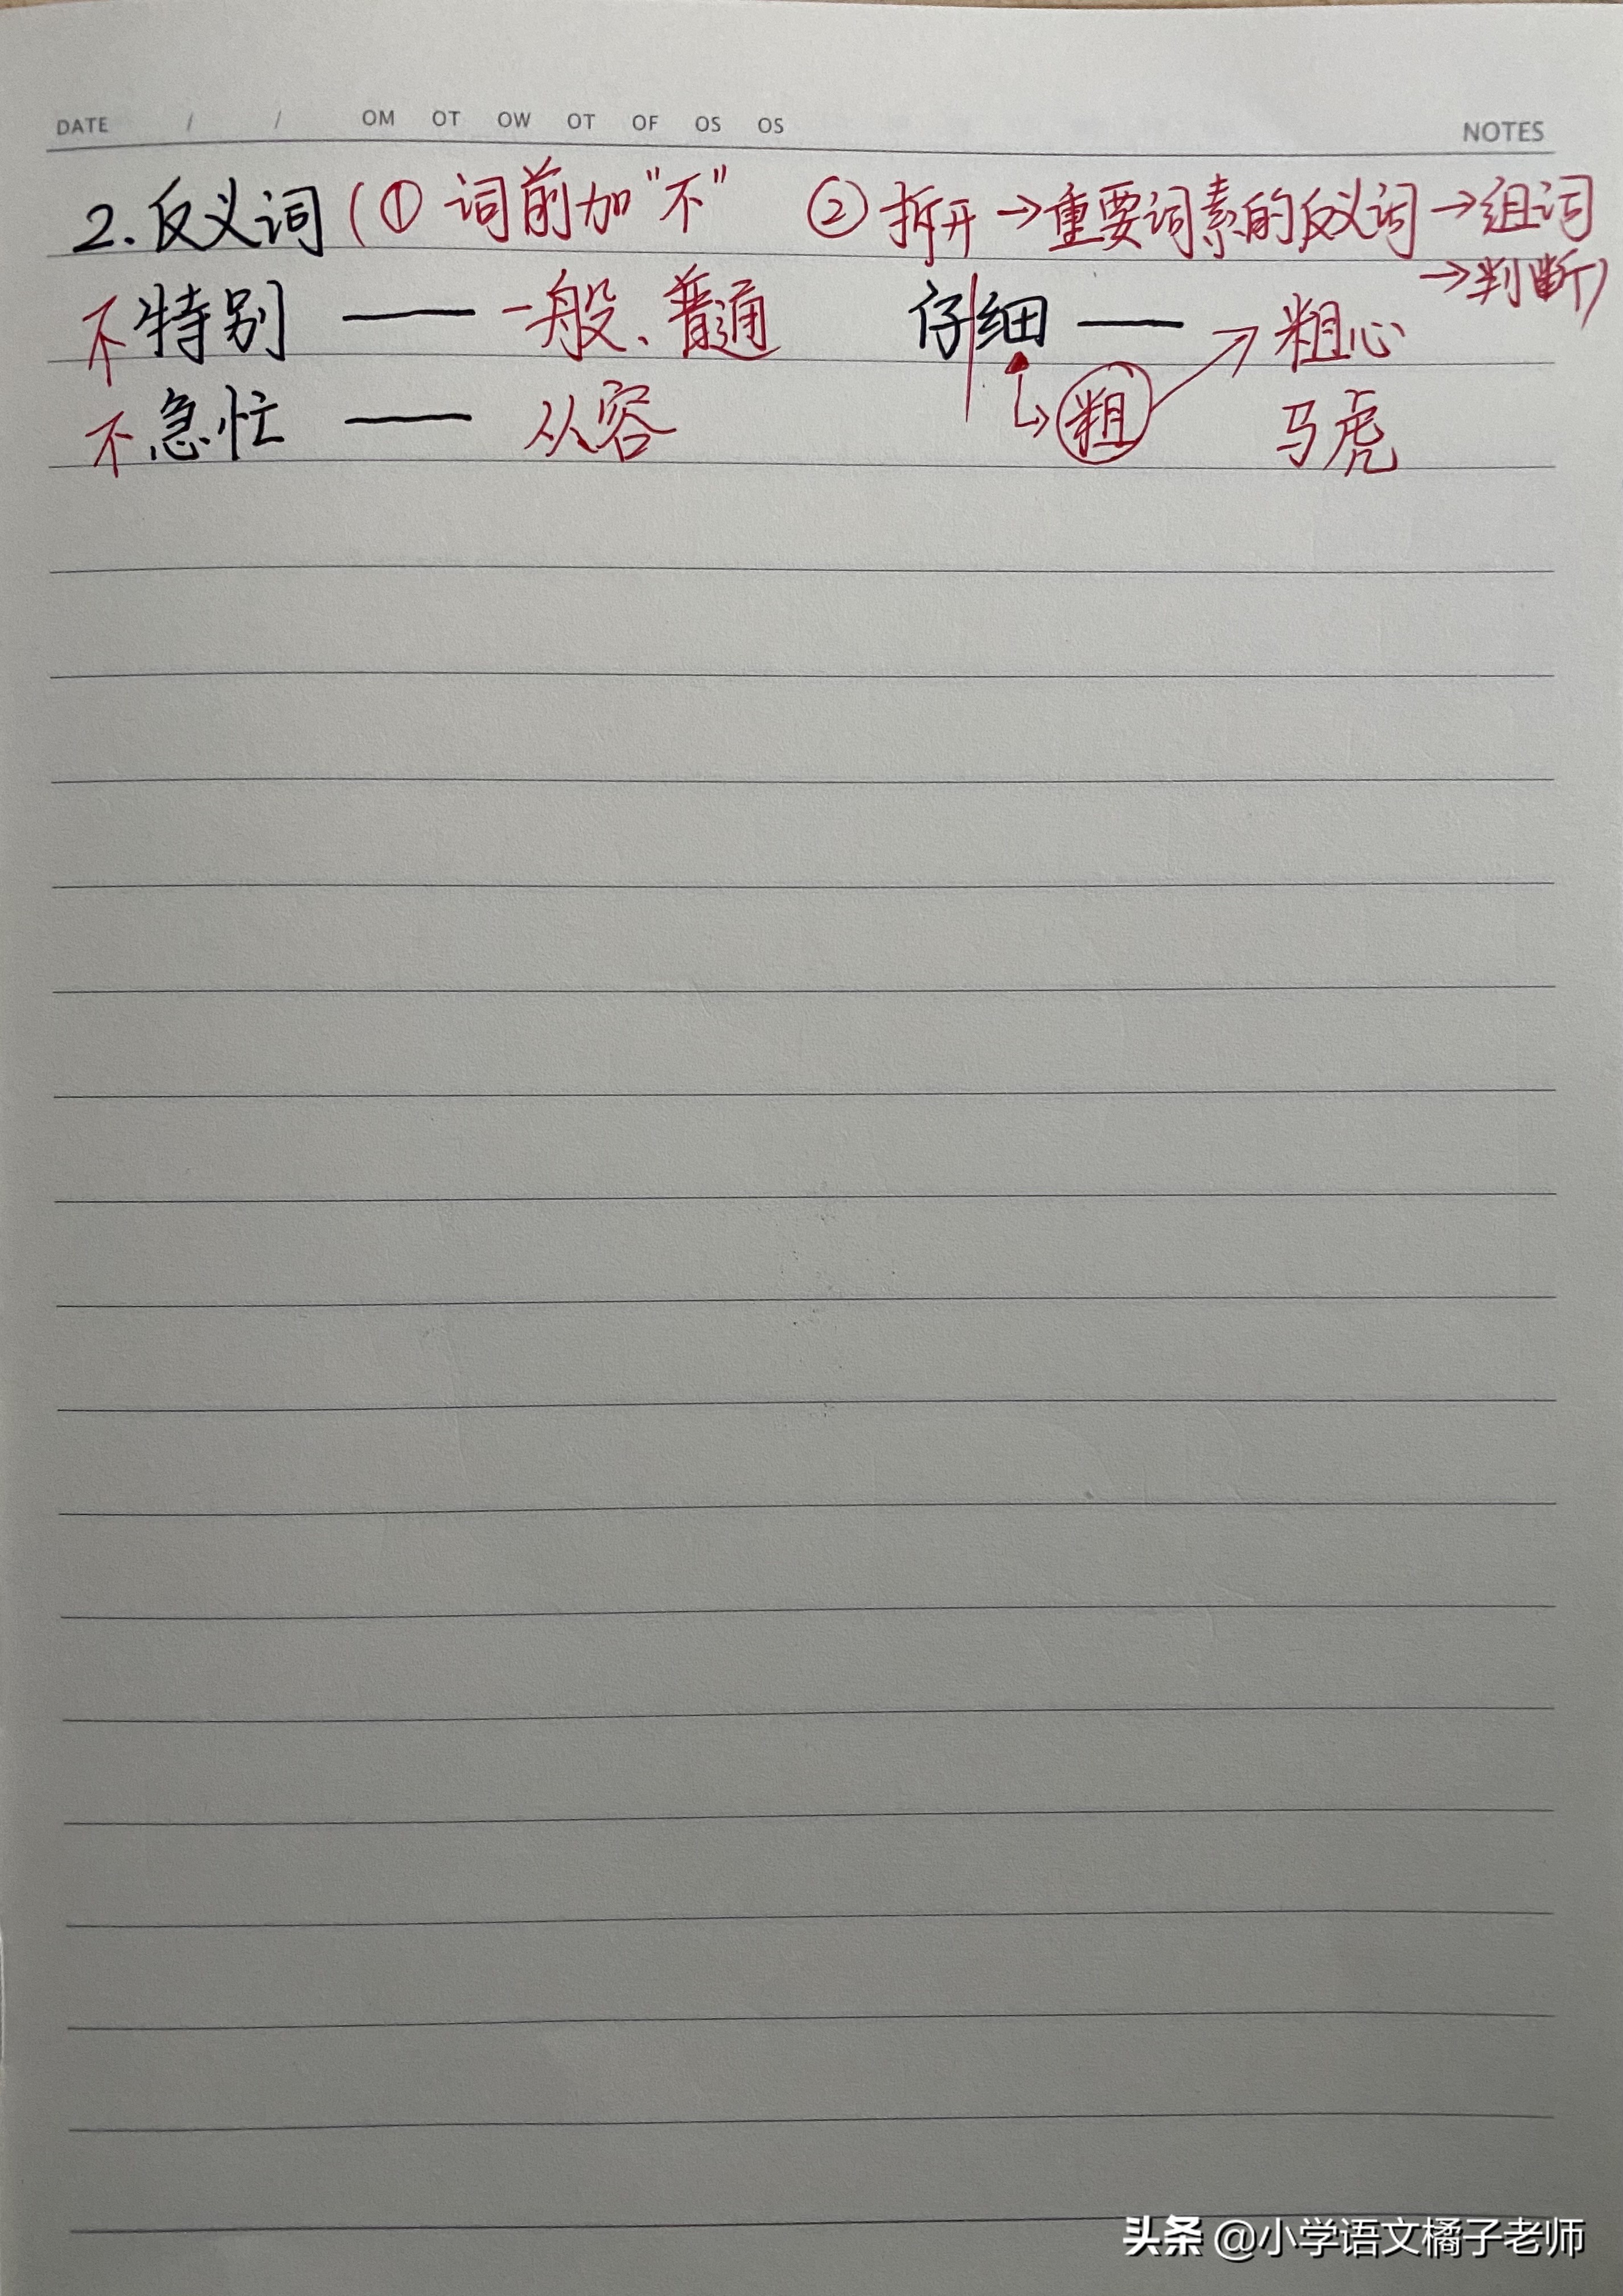 DATE / / OM OT OW OT OF OS OS NOTES
2.反义词(① 词前加"不" ②拆开→重要词素的反义词→组词
→判断)
不特别 —— 一般、普通 仔细 —— 粗心
不急忙 —— 从容 粗 马虎
头条 @小学语文橘子老师